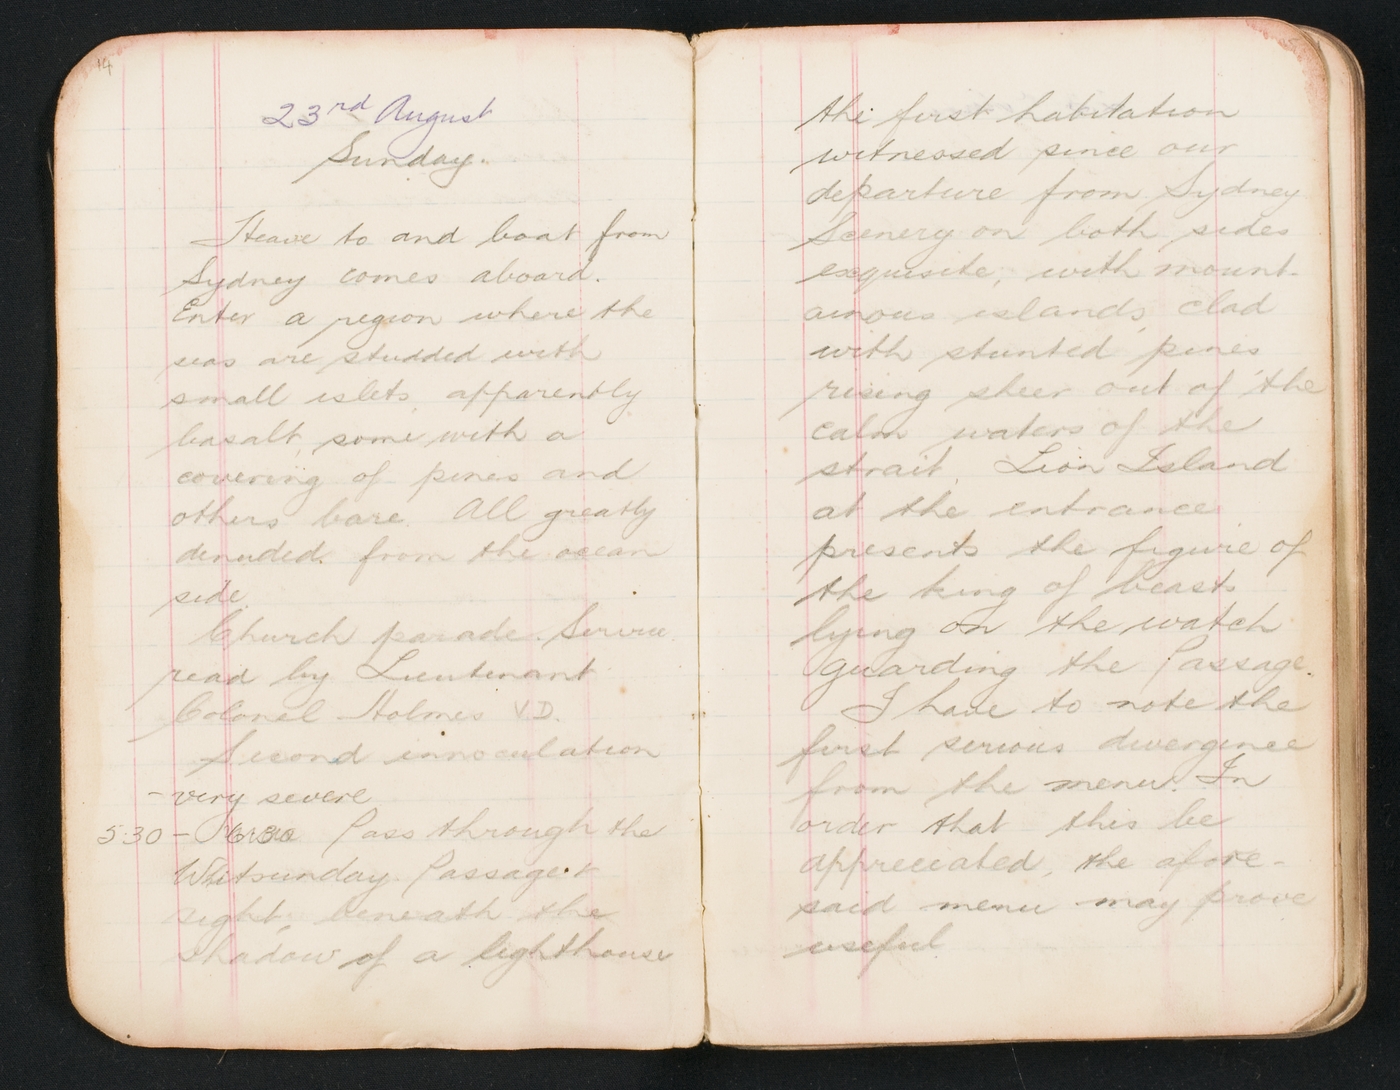 14
23rd August
Sunday.
Heave to and boat from
Sydney comes aboard.
Enter a region where the
seas are studded with
small islets, apparently
basalt, some with a
covering of pines and
others bare. All greatly
denuded from the ocean
side.
Church parade. Service
read by Lieutenant
Colonel Holmes V.D.
Second innoculation
- very severe
5.30 - 6.30 Pass through the
Whitsunday Passage &
sight, beneath the
shadow of a lighthouse
the first habitation
witnessed since our
departure from Sydney
Scenery on both sides
exquisite, with mount-
ainous islands, clad
with stunted pines
rising sheer out of the
calm waters of the
strait. Lion Island
at the entrance
presents the figure of
the king of beasts
lying on the watch
guarding the Passage.
I have to note the
first serious divergence
from the menu. In
order that this be
appreciated, the afore-
said menu may prove
useful